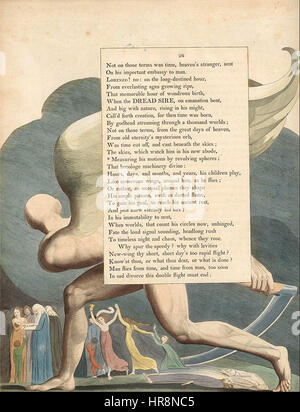 26
Not on those terms was time, heaven's stranger, sent
On his important embassy to man.
LORENZO! no: on the long-destined hour,
From everlasting ages growing ripe,
That memorable hour of wondrous birth,
When the DREAD SIRE, on emanation bent,
And big with nature, rising in his might,
Call'd forth creation, for then time was born,
By godhead streaming through a thousand worlds;
Not on those terms, from the great days of heaven,
From old eternity's mysterious orb,
Was time cut off, and cast beneath the skies;
The skies, which watch him in his new abode,
* Measuring his motions by revolving spheres;
That horologe machinery divine:
Hours, days, and months, and years, his children play,
Like numerous wings, around him, as he flies:
Or rather, as unequal plumes they shape
His ample pinions, swift as darted flame,
To gain his goal, to reach his ancient rest,
And join anew eternity his sire;
In his immutability to nest,
When worlds, that count his circles now, unhinged,
Fate the loud signal sounding, headlong rush
To timeless night and chaos, whence they rose.
Why spur the speedy? why with levities
New-wing thy short, short day's too rapid flight?
Know'st thou, or what thou dost, or what is done?
Man flies from time, and time from man, too soon
In sad divorce this double flight must end:
alamy stock photo
HR8NC5
www.alamy.com